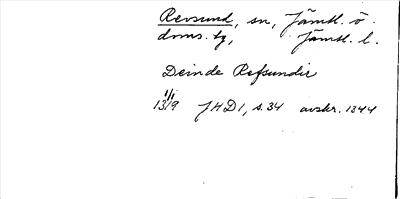 Revsund, sn, Jämtl. ö.
doms. tg, Jämtl. l.
Deinde Refsundir
1/1
1319 JHD1, s. 34 avskr. 1344